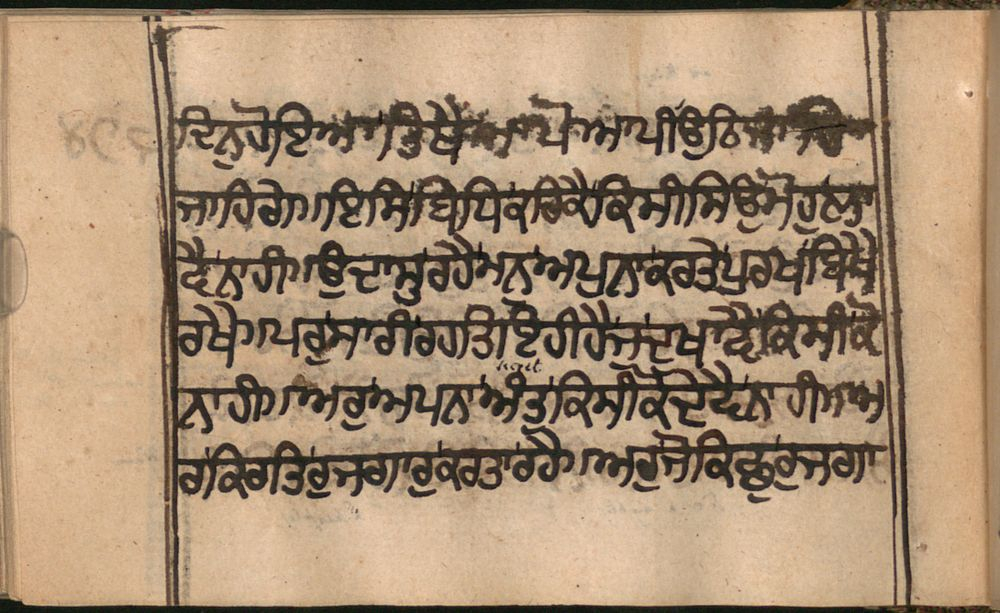 ਦਿਨੁਹੋਇਆ॥ਤਿਥੈ ਆਪੇਆਪੀਉਠਿ
ਜਾਹਿਗੇ॥ਇਸਬਿਧਿਕਰਿਕੈਕਿਸੀਸਿਉਮੋਹੁਲਾ
ਦੈਨਾਹੀ॥ਉਦਾਸੁਰਹੈਮਨੁਅਪਨਾਕਰਤੇਪੁਰਖਬਿਖੈ
ਰਖੈ॥ਪਰੁਸਾਰੀਰਹਤਿਇਹੀਹੈਜੁਦੁਖਾਦੈਕਿਸੀਕੋ
ਨਾਹੀ॥ਅਰੁਅਪਨਾਅੰਤੁਕਿਸੀਕੋਦੇਦੈਨਾਹੀ॥ਅ
ਰੁਕਿਰਤਿਰੁਜਗਾਰੁਕਰਤਾਰਹੈ॥ਅਰੁਜੋਕਿਛੁਰੁਜਗਾ